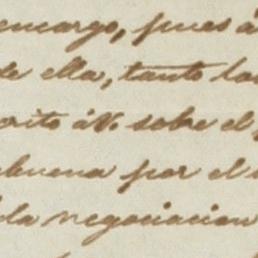 encargo, pues á
de ella, tanto la
crito á V. sobre el
buena por el
la negociacion